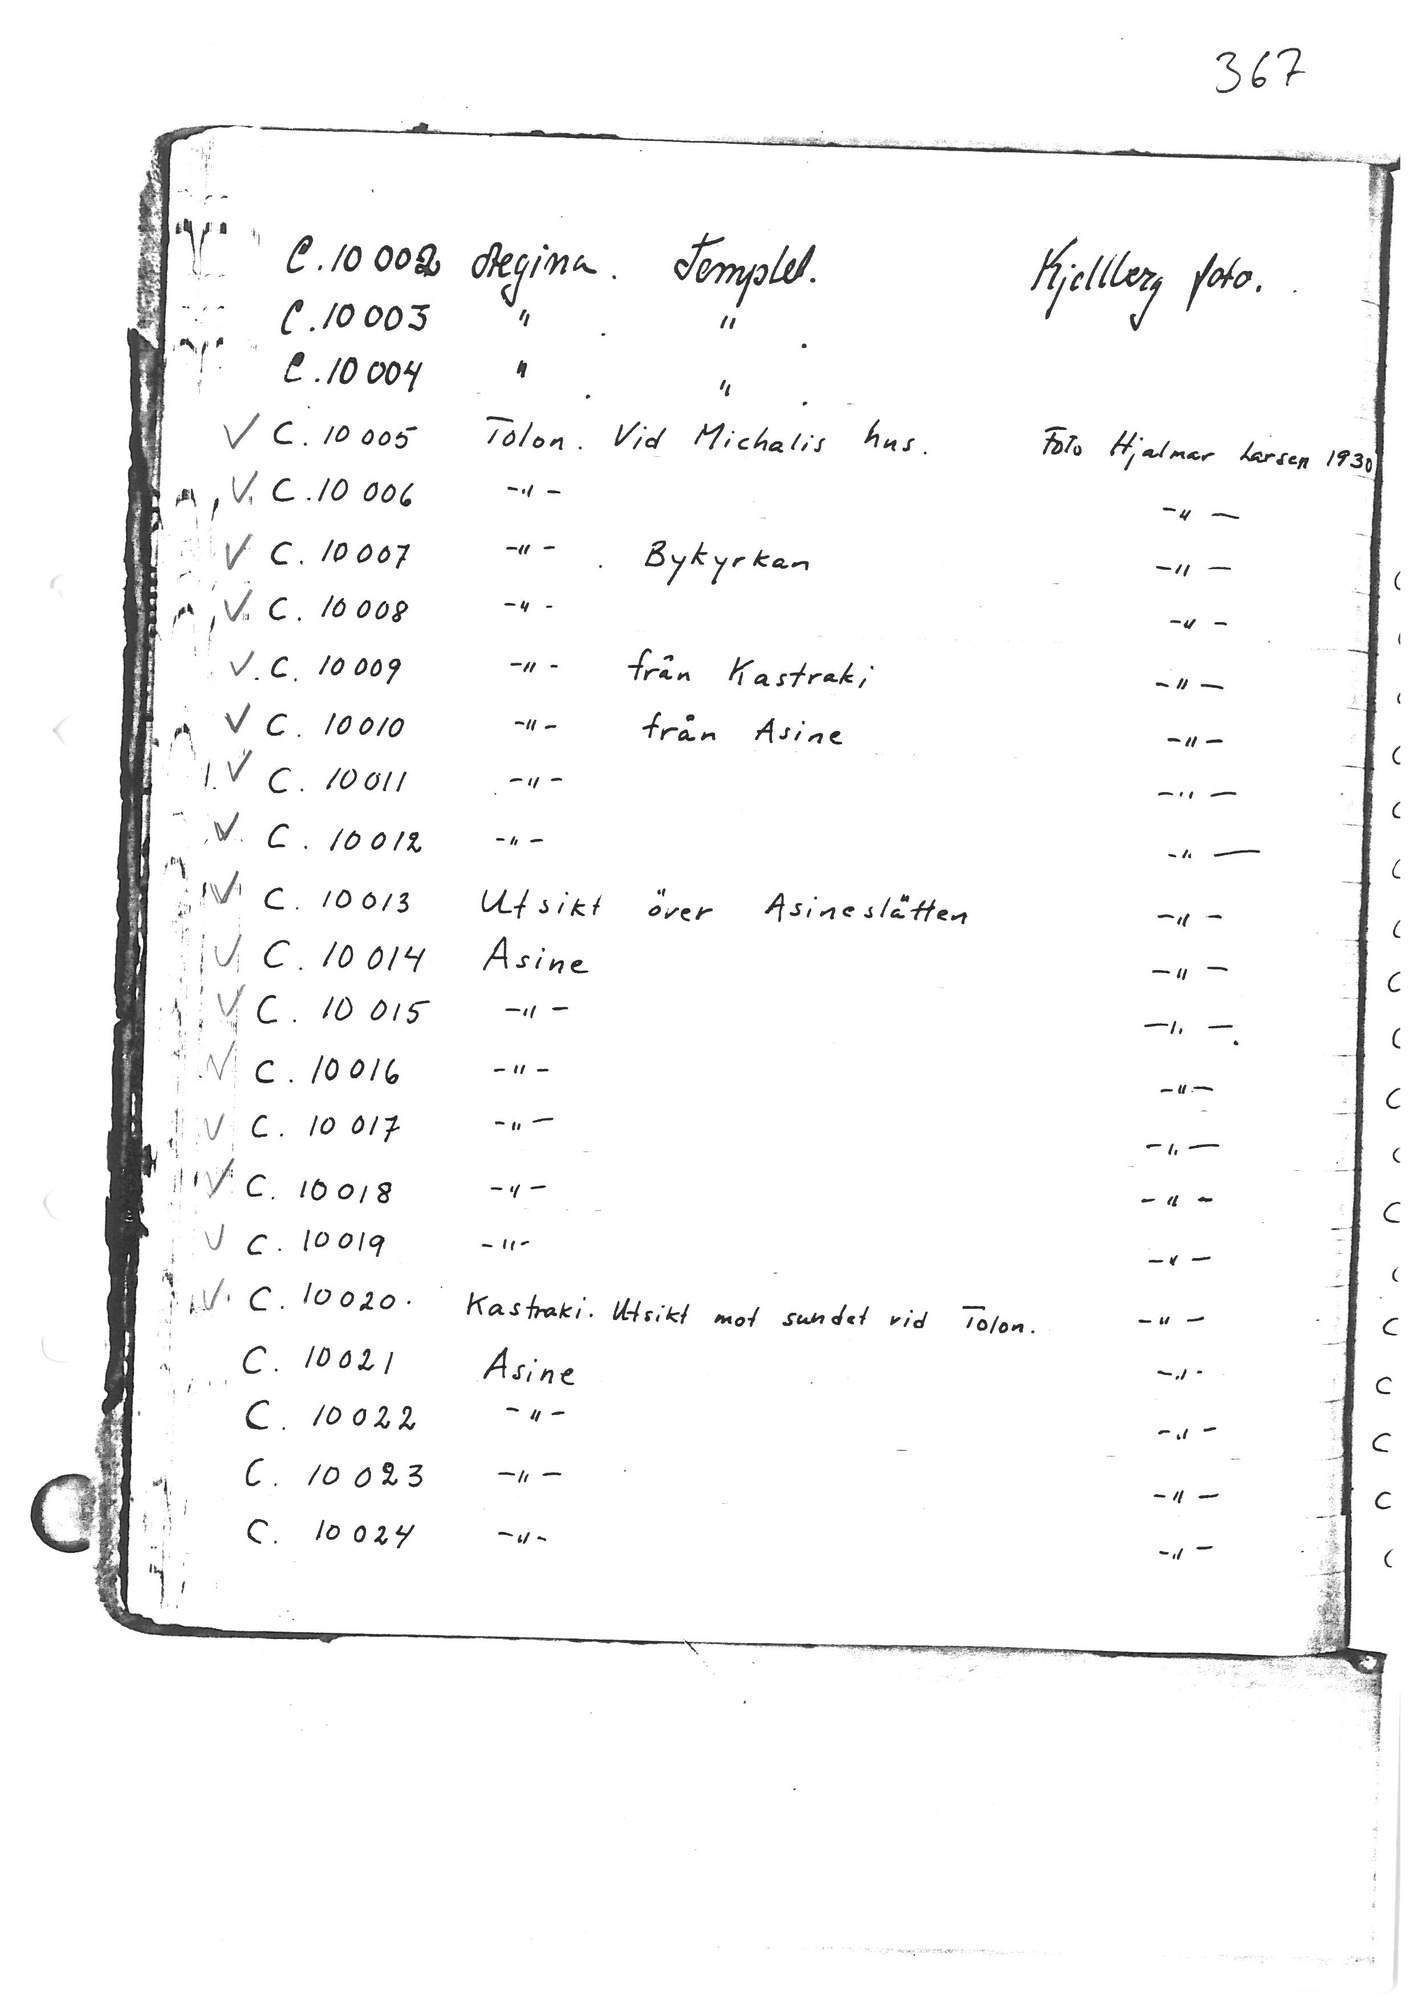 367
C.10 002 Aegina. Templet. Kjellberg foto.
C.10 003 " . " .
C.10 004 " . " .
✓ C. 10 005 Tolon. Vid Michalis hus. Foto Hjalmar Larsen 1930
✓ C. 10 006 -"- -"-
✓ C. 10 007 -"- . Bykyrkan -"-
✓ C. 10 008 -"- -"-
✓ C. 10 009 -"- från Kastraki -"-
✓ C. 10 010 -"- från Asine -"-
✓ C. 10 011 -"- -"-
✓ C. 10 012 -"- -"-
✓ C. 10 013 Utsikt över Asineslätten -"-
✓ C. 10 014 Asine -"-
✓ C. 10 015 -"- -"-
✓ C. 10 016 -"- -"-
✓ C. 10 017 -"- -"-
✓ C. 10 018 -"- -"-
✓ C. 10 019 -"- -"-
✓ C. 10 020. Kastraki. Utsikt mot sundet vid Tolon. -"-
C. 10 021 Asine -"-
C. 10 022 -"- -"-
C. 10 023 -"- -"-
C. 10 024 -"- -"-